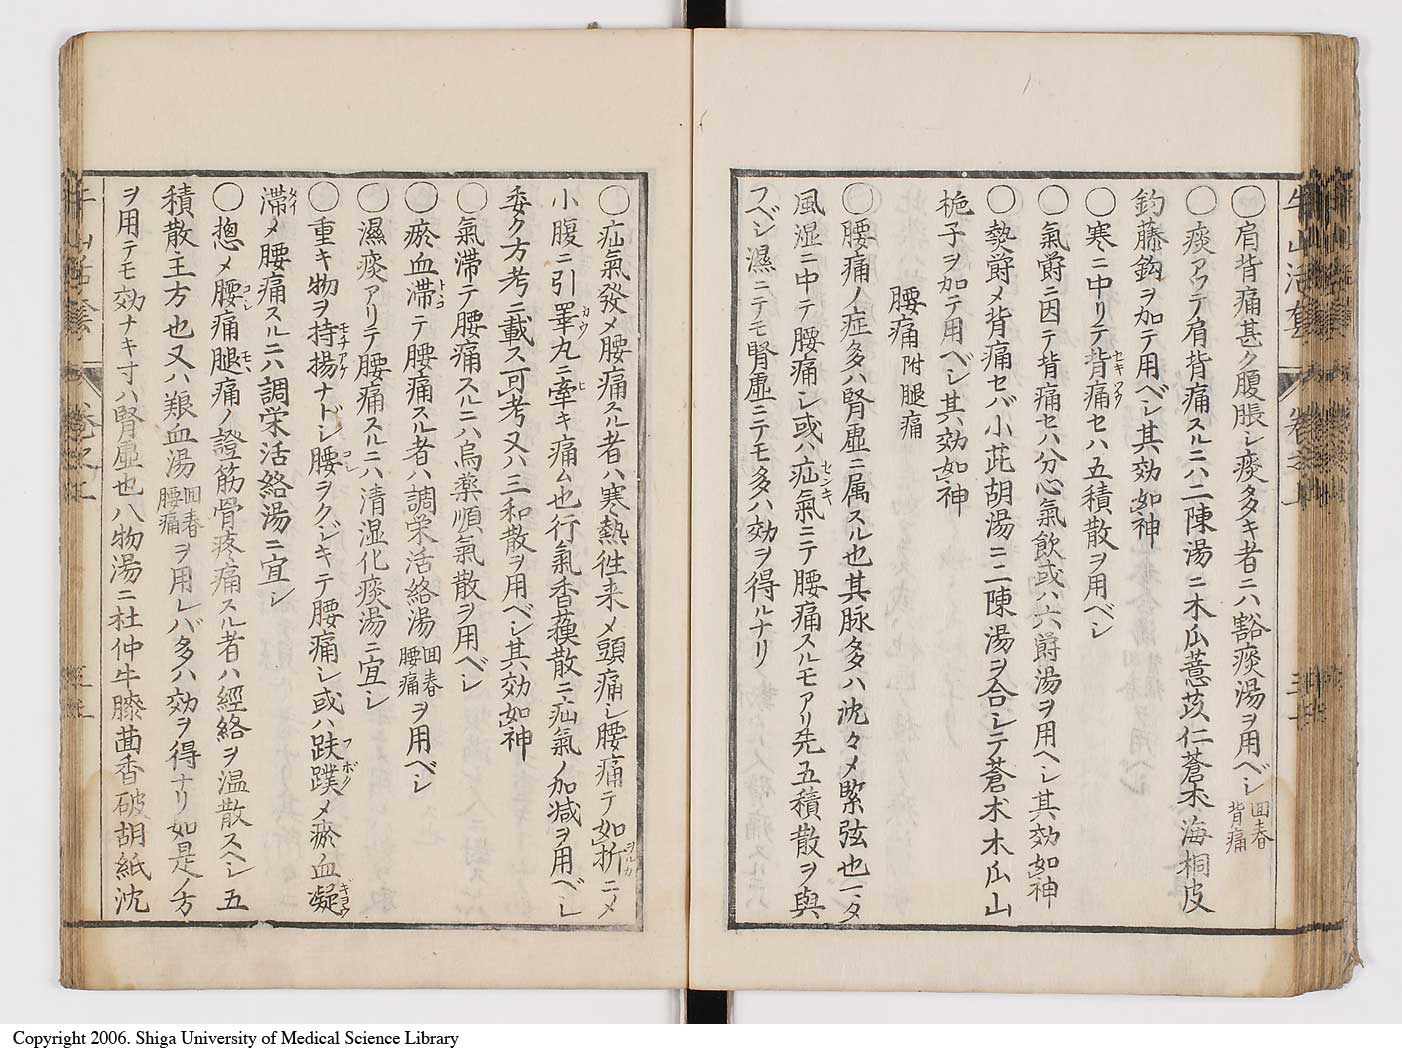 〇肩背痛甚ク腹脹シ痰多キ者ニハ豁痰湯ヲ用ベシ回春背痛
〇痰アツテ肩背痛スルニハ二陳湯ニ木瓜薏苡仁蒼朮海桐皮
釣藤鈎ヲ加テ用ベシ其効如神
〇寒ニ中リテ背痛セハ五積散ヲ用ベシ
セキツウ
〇氣欝ニ因テ背痛セハ分心氣飲或ハ六欝湯ヲ用ヘシ其効如神
〇𤍠欝メ背痛セバ小茈胡湯ニ二陳湯ヲ合シテ蒼朮木瓜山
梔子ヲ加テ用ベシ其効如神
腰痛附腿痛
〇腰痛ノ症多ハ腎虚ニ属スル也其脉多ハ沈々メ緊弦也一タ
風湿ニ中テ腰痛シ或ハ疝氣ニテ腰痛スルモアリ先五積散ヲ與
センキ
フベシ濕ニテモ腎虚ニテモ多ハ効ヲ得ルナリ
〇疝氣發メ腰痛スル者ハ寒熱徃来メ頭痛シ腰痛テ如折ニメ
ヲルカ
小腹ニ引睪丸ニ牽キ痛ム也行氣香蘓散ニ疝氣ノ加减ヲ用ベシ
カウ ヒ
委ク方考ニ載ス可考又ハ三和散ヲ用ベシ其効如神
〇氣滞テ腰痛スルニハ烏薬順氣散ヲ用ベシ
〇瘀血滞テ腰痛スル者ハ調栄活絡湯回春腰痛ヲ用ベシ
トコ
〇濕痰アリテ腰痛スルニハ清湿化痰湯ニ宜シ
〇重キ物ヲ持揚ナドシ腰ヲクジキテ腰痛シ或ハ跌蹼メ瘀血凝
モチアケ コシ フ ボク ギヨウ
滞メ腰痛スルニハ調栄活絡湯ニ宜シ
タイ
〇摠メ腰痛腿痛ノ證筋骨疼痛スル者ハ經絡ヲ温散スヘシ五
コシ モヽ
積散主方也又ハ趂血湯回春腰痛ヲ用レバ多ハ効ヲ得ナリ如是ノ方
ヲ用テモ効ナキ寸ハ腎虚也八物湯ニ杜仲牛膝茴香破胡紙沈
牛山活套
卷之上
Copyright 2006. Shiga University of Medical Science Library